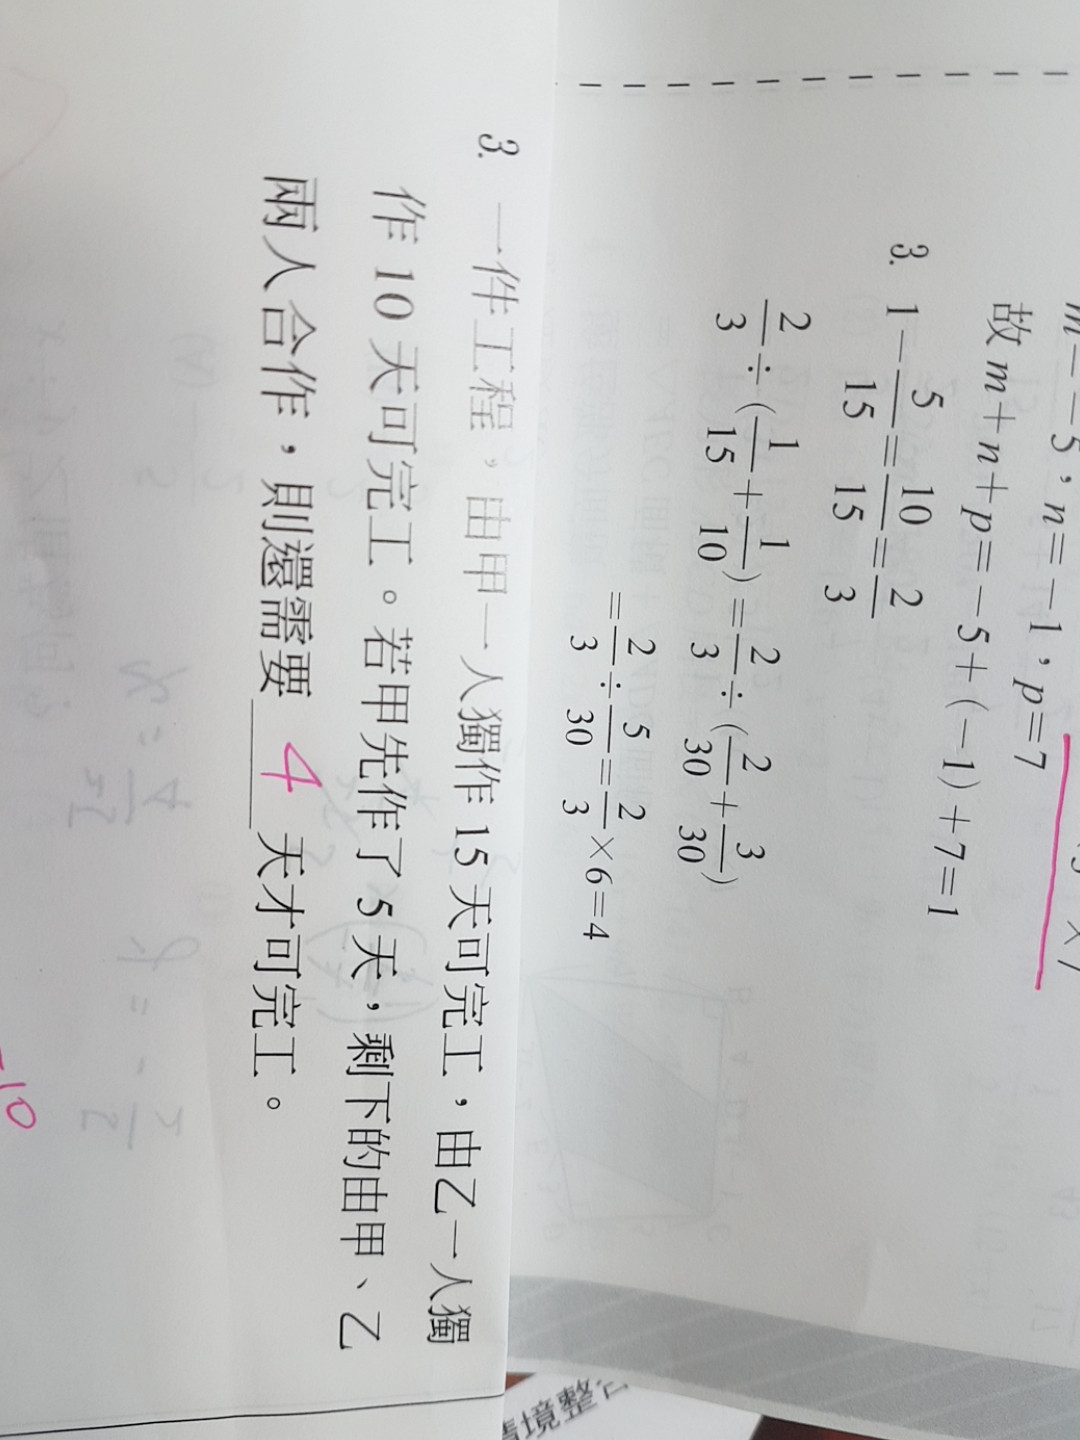 m=-5,n=-1,p=7
故m+n+p=-5+(-1)+7=1
3. 1-5/15=10/15=2/3
2/3÷(1/15+1/10)=2/3÷(2/30+3/30)
=2/3÷5/30=2/3×6=4
3. 一件工程,由甲一人獨作15天可完工,由乙一人獨
作10天可完工。若甲先作了5天,剩下的由甲、乙
兩人合作,則還需要 4 天才可完工。
10
境整合